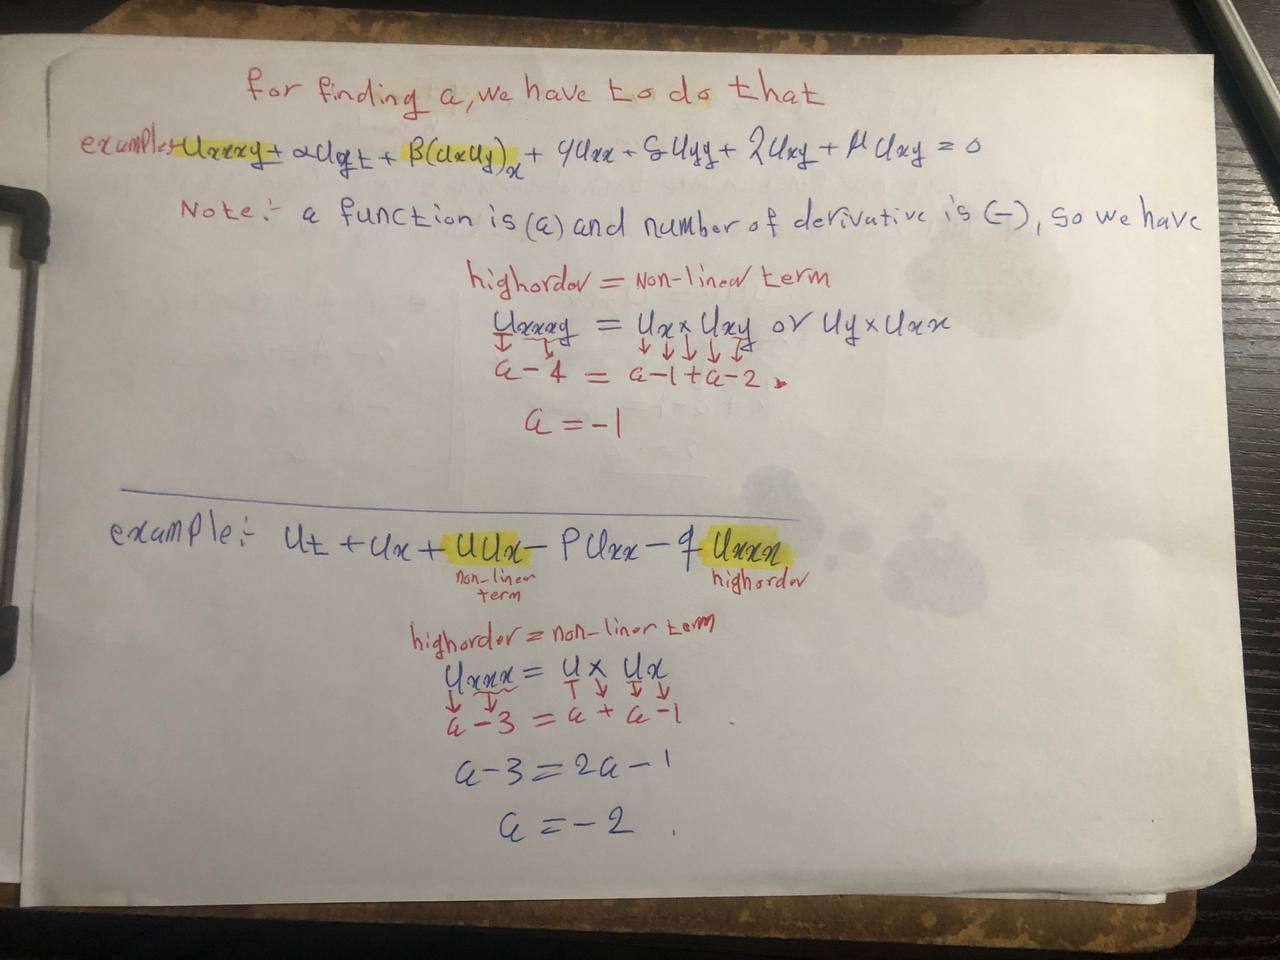 for finding a, we have to do that
example:- Uxxxy + αUyt + β(UxUy)x + γUxx + δUyy + λUxy + μUxy = 0
Note:- a function is (a) and number of derivative is (-), so we have
highorder = Non-linear term
Uxxxy = Ux × Uxy or Uy × Uxx
↓ ↓ ↓ ↓ ↓ ↓ ↓
a - 4 = a-1 + a-2 .
a = -1
example:- Ut + Ux + UUx - PUxx - qUxxx
non-linear term
highorder
highorder = non-liner term
Uxxx = U × Ux
↓ ↓ ↓ ↓ ↓ ↓
a - 3 = a + a - 1
a - 3 = 2a - 1
a = -2 .